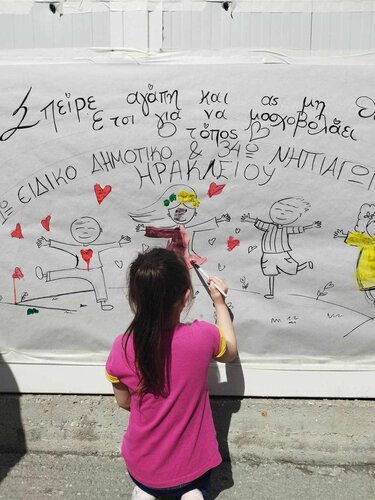 Σπείρε αγάπη και ας μη
Έτσι για να μοσχοβολάει
ο τόπος
1ο ΕΙΔΙΚΟ ΔΗΜΟΤΙΚΟ & 34ο ΝΗΠΙΑΓΩΓ
ΗΡΑΚΛΕΙΟΥ